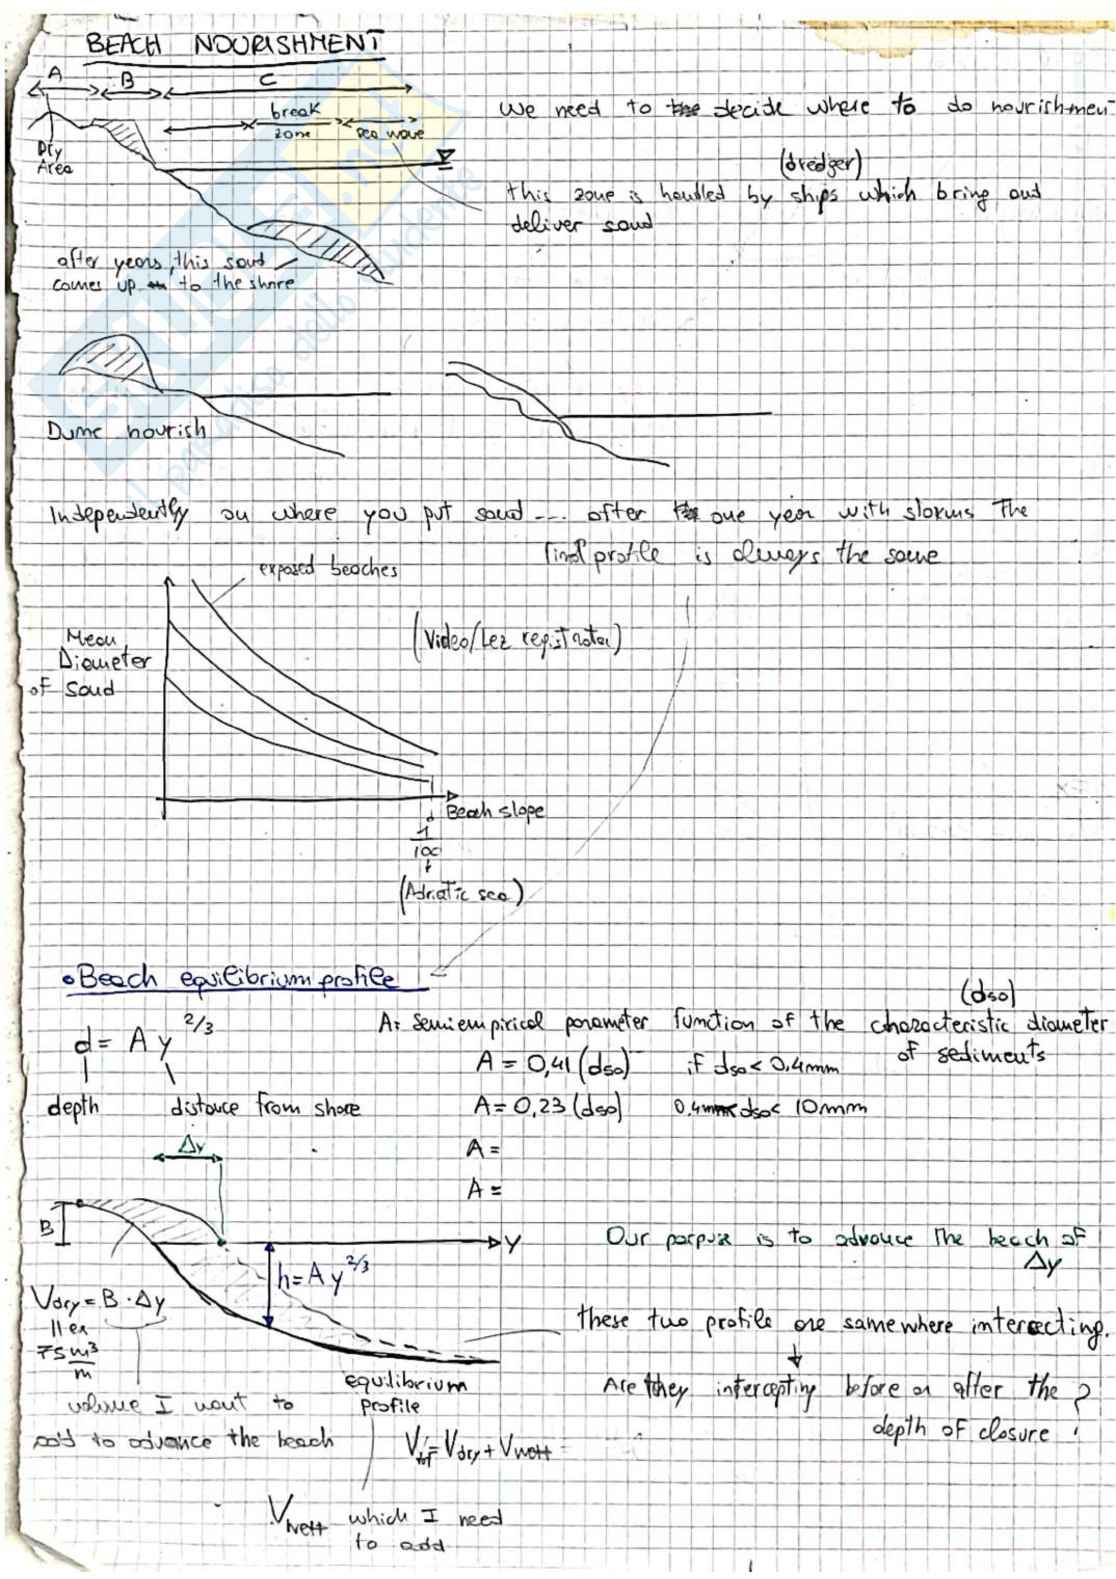 BEACH NOURISHMENT
A B C
break
zone sea wave
Dry
Area
We need to decide where to do nourishment
(dredger)
this zone is handled by ships which bring and
deliver sand
after years, this sand
comes up to the shore
Dume nourish
Independently on where you put sand ... after one year with storms the
final profile is always the same
exposed beaches
Mean
Diameter
of sand
(Video/Lez registrata)
Beach slope
1
100
(Adriatic sea)
• Beach equilibrium profile
d = A y^2/3
depth distance from shore
(d50)
A: Semiempirical parameter function of the characteristic diameter
of sediments
A = 0,41 (d50) if d50 < 0.4mm
A = 0,23 (d50) 0.4mm< d50 < 10mm
A =
A =
Δy
B
y
h = A y^2/3
Our porpuse is to advance the beach of
Δy
Vdry = B · Δy
|| ex
75 m³
m
these two profile are samewhere intersecting.
Are they intercepting before or after the ?
depth of closure
equilibrium
profile
volume I want to
add to advance the beach
Vtot = Vdry + Vwett
Vwett which I need
to add